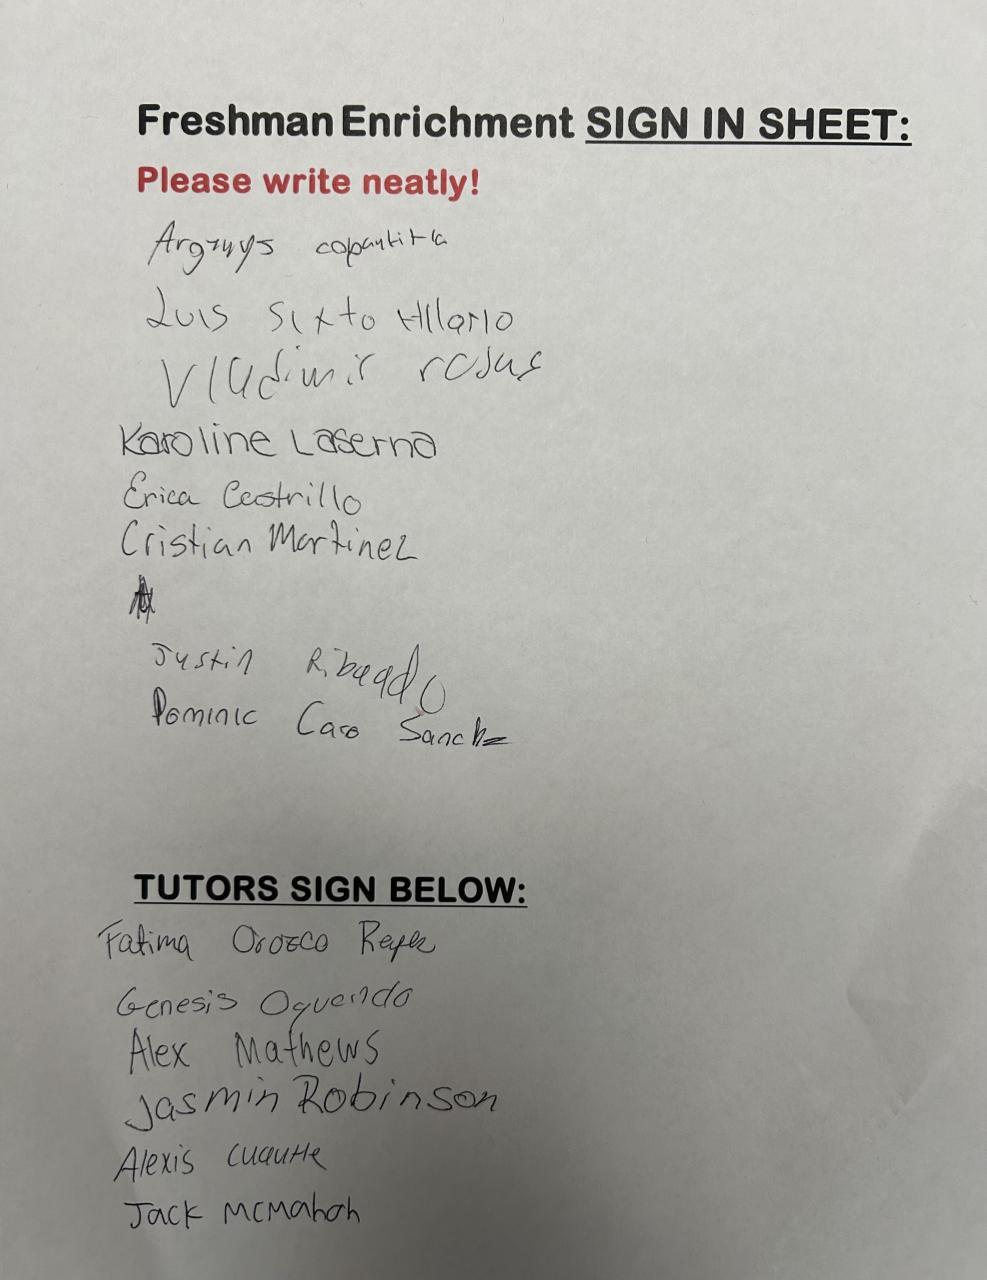 Freshman Enrichment SIGN IN SHEET:
Please write neatly!
copantitla
Luis Sixto HIlario
Vladimir rojas
Karoline Laserna
Erica Castrillo
Cristian Martinez
Justin
Dominic Caro Sanchz
TUTORS SIGN BELOW:
Fatima Orozco Reyez
Genesis Oquendo
Alex Mathews
Jasmin Robinson
Alexis cuautle
Jack McMahon